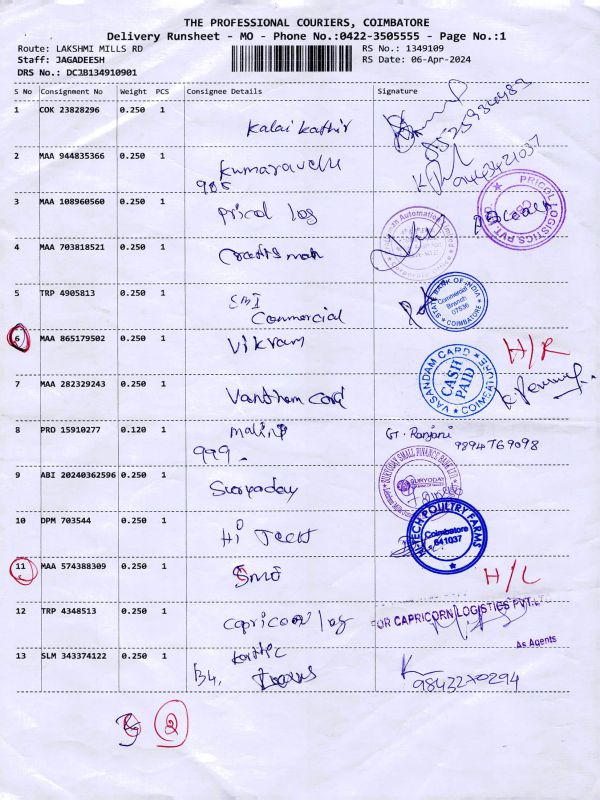 THE PROFESSIONAL COURIERS, COIMBATORE
Delivery Runsheet - MO - Phone No.:0422-3505555 - Page No.:1
Route: LAKSHMI MILLS RD
RS No.: 1349109
Staff: JAGADEESH
RS Date: 06-Apr-2024
DRS No.: DCJB134910901
S No Consignment No Weight PCS Consignee Details Signature
1 COK 23828296 0.250 1
Kalai Kathir
2 MAA 944835366 0.250 1
Kumaravelu
985
3 MAA 108960560 0.250 1
Pricol log
PRICOL LOGISTICS PVT.
4 MAA 703818521 0.250 1
Craftsman
Automation Limited
5 TRP 4905813 0.250 1
SBI
Commercial
STATE BANK OF INDIA
Commercial
Branch
07536
COIMBATORE
6 MAA 865179502 0.250 1
Vikram
H/R
7 MAA 282329243 0.250 1
Vantham Card
VASANDAM CARD
CASH
PAID
COIMBATORE
8 PRO 15910277 0.120 1
malini
999
GT. Ranjani
9894769098
9 ABI 20240362596 0.250 1
Suryoday
SURYODAY SMALL FINANCE BANK LTD
SURYODAY
10 DPM 703544 0.250 1
Hi Tech
HI-TECH POULTRY FARMS
Coimbatore
641037
11 MAA 574388309 0.250 1
H/L
12 TRP 4348513 0.250 1
Capricorn log
FOR CAPRICORN LOGISTICS PVT.LTD
As Agents
13 SLM 343374122 0.250 1
B4,
9843270294
2